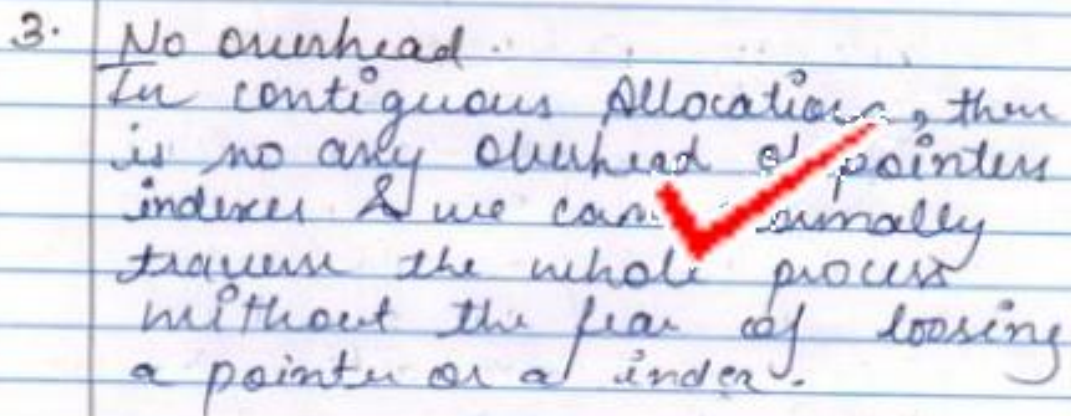 3. No overhead.
In contiguous Allocation, then
is no any overhead of pointers
indexes & we can normally
traverse the whole process
without the fear of loosing
a pointer or a index.